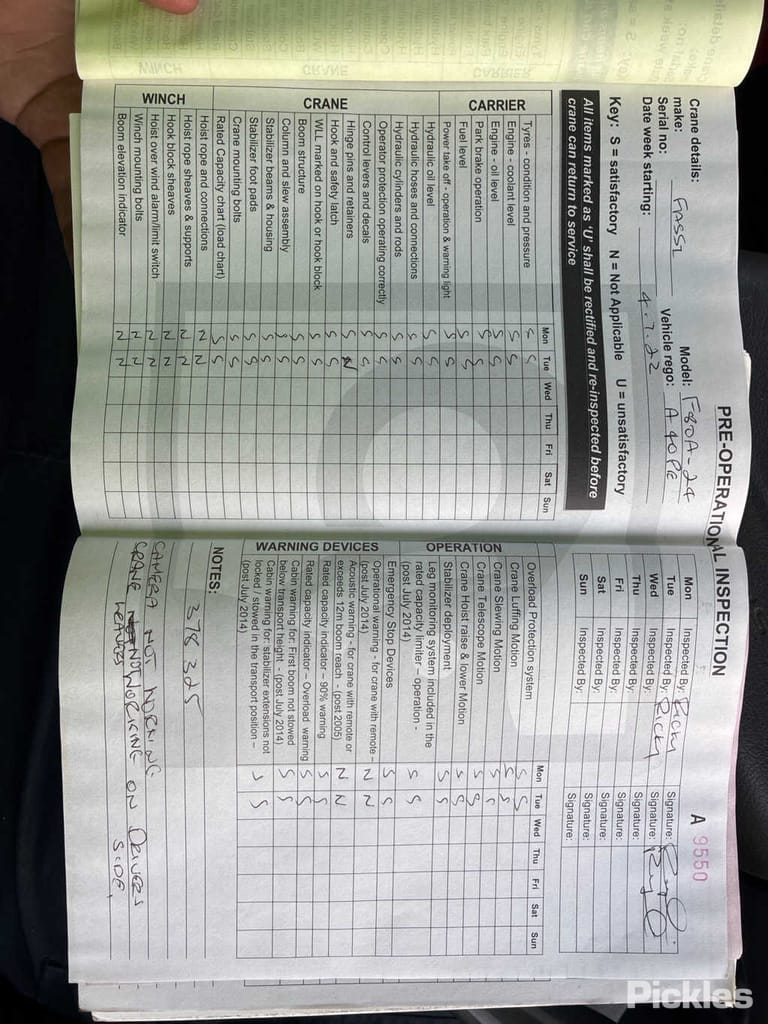 PRE-OPERATIONAL INSPECTION
A 9550
Crane details:
make: FASSI Model: F80A-24
Serial no: Vehicle rego: A40PE
Date week starting: 4.7.22
Key: S = satisfactory N = Not Applicable U = unsatisfactory
All items marked as 'U' shall be rectified and re-inspected before
crane can return to service
Mon Tue Wed Thu Fri Sat Sun
CARRIER
Tyres - condition and pressure S S
Engine - coolant level S S
Engine - oil level S S
Park brake operation S S
Fuel level S S
Power take off - operation & warning light S S
CRANE
Hydraulic oil level S S
Hydraulic hoses and connections S S
Hydraulic cylinders and rods S S
Operator protection operating correctly S S
Control levers and decals S S
Hinge pins and retainers S N
Hook and safety latch S S
WLL marked on hook or hook block S S
Boom structure S S
Column and slew assembly S S
Stabilizer beams & housing S S
Stabilizer foot pads S S
Crane mounting bolts S S
Rated Capacity chart (load chart) S S
WINCH
Hoist rope and connections N N
Hoist rope sheaves & supports N N
Hook block sheaves N N
Hoist over wind alarm/limit switch N N
Winch mounting bolts N N
Boom elevation indicator N N
Mon Inspected By: Ricky Signature:
Tue Inspected By: Ricky Signature:
Wed Inspected By: Signature:
Thu Inspected By: Signature:
Fri Inspected By: Signature:
Sat Inspected By: Signature:
Sun Inspected By: Signature:
Mon Tue Wed Thu Fri Sat Sun
OPERATION
Overload Protection system S S
Crane Luffing Motion S S
Crane Slewing Motion S S
Crane Telescope Motion S S
Crane Hoist raise & lower Motion S S
Stabilizer deployment S S
Leg monitoring system included in the
rated capacity limiter – operation -
(post July 2014) S S
WARNING DEVICES
Emergency Stop Devices S S
Operational warning - for crane with remote –
(post July 2014) N N
Acoustic warning - for crane with remote or
exceeds 12m boom reach - (post 2005) N N
Rated capacity indicator – 90% warning S S
Rated capacity indicator – Overload warning S S
Cabin warning for: First boom not stowed
below transport height - (post July 2014) S S
Cabin warning for: stabilizer extensions not
locked / stowed in the transport position –
(post July 2014) S S
NOTES:
378325
CAMERA NOT WORKING
CRANE NOT WORKING ON DRIVERS
SIDE,
Pickles